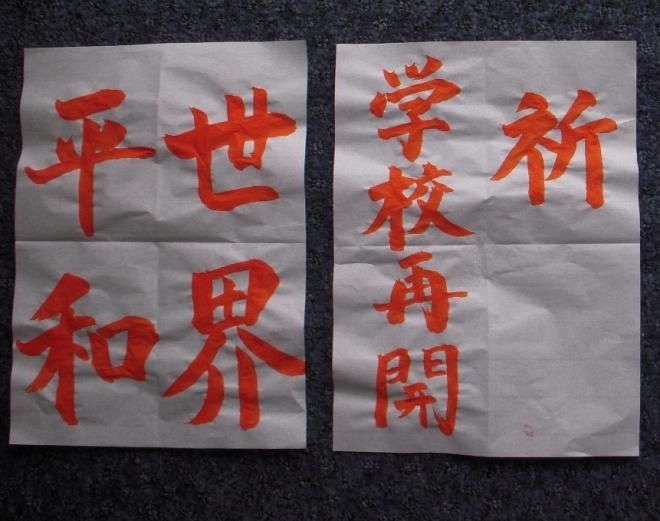 祈
学校再開
世界
平和